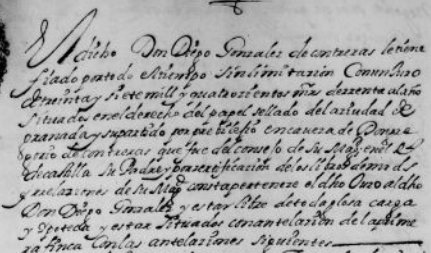 El dicho Don Diego Gonzalez de contreras le tiene
fiado por todo el tiempo sin limitazion Con un Juro
de treinta y siete mill y quatrocientos mrs de rrenta al año
situados en el derecho del papel sellado de la ziudad de
granada y su partido por previlegio en cavezа de Don
de contreras que fue del consejo de Su Magd en el
de castilla Su Padre y por zertificazion de los libros de mrds
y relaziones de Su Magd consta pertenezer el dho Juro al dho
Don Diego Gonzalez y estar libre de toda glosa carga
y Ypoteca y estar situados con antelazion de la prime
ra finca Con las antelaziones siguientes